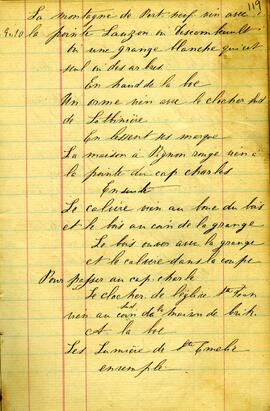 119
La montagne de Port neuf vin avec
la pointe Lauzon ou
ou une grange blanche qui est
seul ou des arbres
En haut de la
Un orme vin avec le clocher sud
de Lotbinière
En
La maison a Pignon rouge vin a
la pointe du cap charles
Ensuite
Le calvère vin au boue du bois
et le bois au coin de la grange
Le bois ensor avec la grange
et le calvère dans la coupe
Pour passer au cap charle
Le clocher de l'église St Jean
vin au coin de la maison de brik
a la
Les Lumière de Ste Emelie
enremple